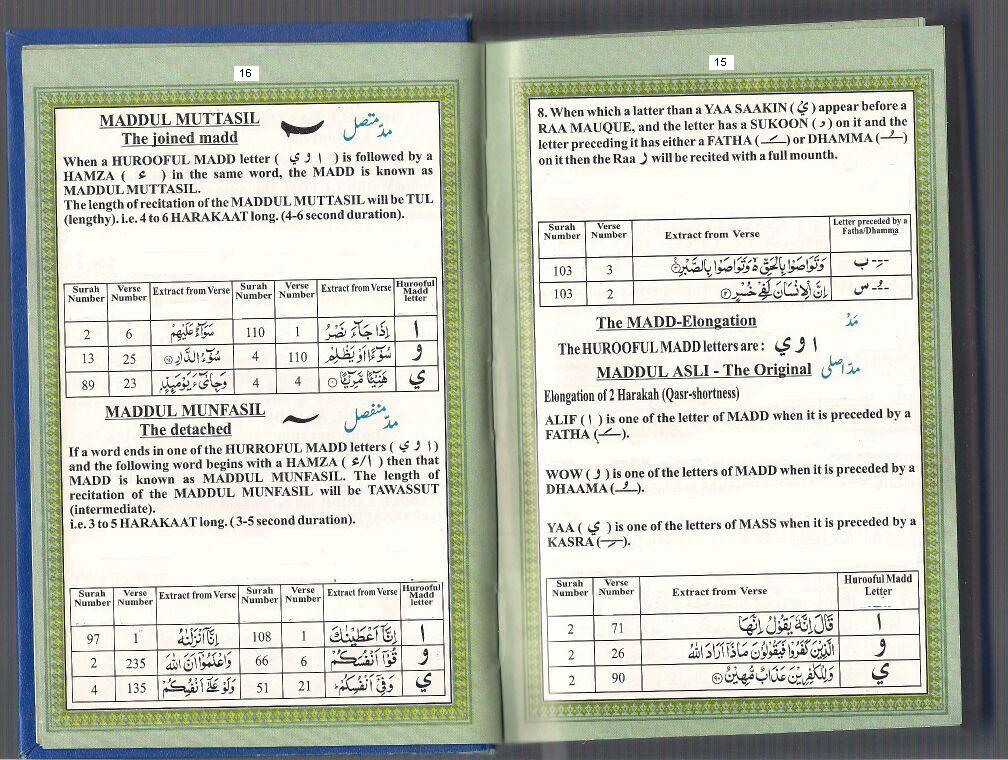 15
8. When which a latter than a YAA SAAKIN ( يْ ) appear before a
RAA MAUQUE, and the letter has a SUKOON ( و ) on it and the
letter preceding it has either a FATHA ( ـَ ) or DHAMMA ( ـُ )
on it then the Raa ر will be recited with a full mounth.
Surah Number | Verse Number | Extract from Verse | Letter preceded by a Fatha/Dhamma
103 | 3 | وَتَوَاصَوْا بِالْحَقِّ ەۙ وَتَوَاصَوْا بِالصَّبْرِ ۝٣ | ب
103 | 2 | اِنَّ الْاِنْسَانَ لَفِىْ خُسْرٍ ۝٢ | س
The MADD-Elongation مَدْ
The HUROOFUL MADD letters are : ا و ي
MADDUL ASLI - The Original مدّ اصلی
Elongation of 2 Harakah (Qasr-shortness)
ALIF ( ا ) is one of the letter of MADD when it is preceded by a
FATHA ( ـَ ).
WOW ( و ) is one of the letters of MADD when it is preceded by a
DHAAMA ( ـُ ).
YAA ( ي ) is one of the letters of MASS when it is preceded by a
KASRA ( ـِ ).
Surah Number | Verse Number | Extract from Verse | Hurooful Madd Letter
2 | 71 | قَالَ اِنَّهٗ يَقُوْلُ اِنَّهَا | ا
2 | 26 | الَّذِيْنَ كَفَرُوْا فَيَقُوْلُوْنَ مَاذَآ اَرَادَ اللّٰهُ | و
2 | 90 | وَلِلْكٰفِرِيْنَ عَذَابٌ مُّهِيْنٌ ۝٩٠ | ي
16
MADDUL MUTTASIL مدّ متصل
The joined madd
When a HUROOFUL MADD letter ( ا و ي ) is followed by a
HAMZA ( ء ) in the same word, the MADD is known as
MADDUL MUTTASIL.
The length of recitation of the MADDUL MUTTASIL will be TUL
(lengthy). i.e. 4 to 6 HARAKAAT long. (4-6 second duration).
Surah Number | Verse Number | Extract from Verse | Surah Number | Verse Number | Extract from Verse | Hurooful Madd letter
2 | 6 | سَوَآءٌ عَلَيْهِمْ | 110 | 1 | اِذَا جَآءَ نَصْرُ | ا
13 | 25 | سُوْٓءُ الدَّارِ ۝٢٥ | 4 | 110 | سُوْٓءًا اَوْ يَظْلِمْ | و
89 | 23 | وَجِایْٓءَ يَوْمَئِذٍۢ | 4 | 4 | هَنِيْٓئًا مَّرِيْٓئًا ۝ | ي
MADDUL MUNFASIL مدّ منفصل
The detached
If a word ends in one of the HURROFUL MADD letters ( ا و ي )
and the following word begins with a HAMZA ( ء/ا ) then that
MADD is known as MADDUL MUNFASIL. The length of
recitation of the MADDUL MUNFASIL will be TAWASSUT
(intermediate).
i.e. 3 to 5 HARAKAAT long. (3-5 second duration).
Surah Number | Verse Number | Extract from Verse | Surah Number | Verse Number | Extract from Verse | Hurooful Madd letter
97 | 1 | اِنَّآ اَنْزَلْنٰهُ | 108 | 1 | اِنَّآ اَعْطَيْنٰكَ | ا
2 | 235 | وَاعْلَمُوْٓا اَنَّ اللّٰهَ | 66 | 6 | قُوْٓا اَنْفُسَكُمْ | و
4 | 135 | وَلَوْ عَلٰٓى اَنْفُسِكُمْ | 51 | 21 | وَفِىْٓ اَنْفُسِكُمْ | ي